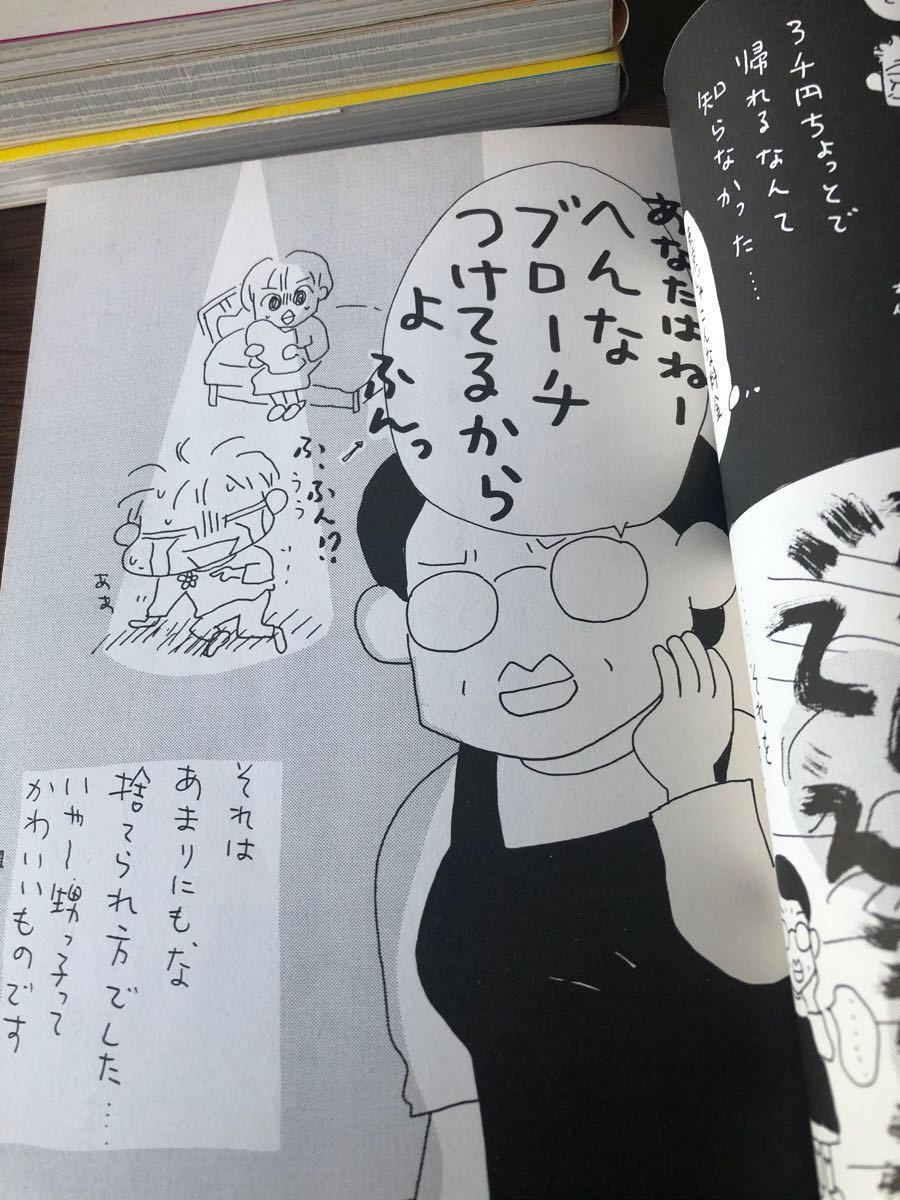 3千円ちょっとで
帰れるなんて
知らなかった……
あなたはねー
へんな
ブローチ
つけてるから
よ
ふんっ
ふ、ふん!?
ううう
ああ
それを
それは
あまりにも、な
捨てられ方でした……
いやー甥っ子って
かわいいものです